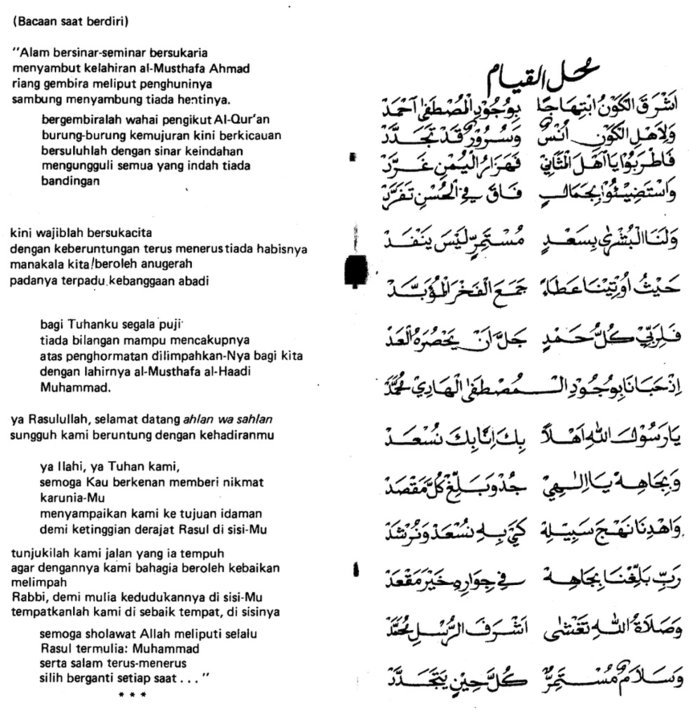 (Bacaan saat berdiri)
"Alam bersinar-seminar bersukaria
menyambut kelahiran al-Musthafa Ahmad
riang gembira meliput penghuninya
sambung menyambung tiada hentinya.
bergembiralah wahai pengikut Al-Qur'an
burung-burung kemujuran kini berkicauan
bersuluhlah dengan sinar keindahan
mengungguli semua yang indah tiada
bandingan
kini wajiblah bersukacita
dengan keberuntungan terus menerus tiada habisnya
manakala kita beroleh anugerah
padanya terpadu kebanggaan abadi
bagi Tuhanku segala puji
tiada bilangan mampu mencakupnya
atas penghormatan dilimpahkan-Nya bagi kita
dengan lahirnya al-Musthafa al-Haadi
Muhammad.
ya Rasulullah, selamat datang ahlan wa sahlan
sungguh kami beruntung dengan kehadiranmu
ya Ilahi, ya Tuhan kami,
semoga Kau berkenan memberi nikmat
karunia-Mu
menyampaikan kami ke tujuan idaman
demi ketinggian derajat Rasul di sisi-Mu
tunjukilah kami jalan yang ia tempuh
agar dengannya kami bahagia beroleh kebaikan
melimpah
Rabbi, demi mulia kedudukannya di sisi-Mu
tempatkanlah kami di sebaik tempat, di sisinya
semoga sholawat Allah meliputi selalu
Rasul termulia: Muhammad
serta salam terus-menerus
silih berganti setiap saat . . . "
* * *
محل القيام
اَشْرَقَ الْكَوْنُ ابْتِهَاجًا بِوُجُوْدِ الْمُصْطَفٰى اَحْمَدْ
وَلِاَهْلِ الْكَوْنِ اُنْسٌ وَسُرُوْرٌ قَدْ تَجَدَّدْ
فَاطْرَبُوْا يَا اَهْلَ الْمَثَانِيْ فَهَزَارُ الْيُمْنِ غَرَّدْ
وَاسْتَضِيْئُوْا بِجَمَالٍ فَاقَ فِي الْحُسْنِ تَفَرَّدْ
وَلَنَا الْبُشْرٰى بِسَعْدٍ مُسْتَمِرٍّ لَيْسَ يَنْفَدْ
حَيْثُ اُوْتِيْنَا عَطَاءً جَمَعَ الْفَخْرَ الْمُؤَبَّدْ
فَلِرَبِّيْ كُلُّ حَمْدٍ جَلَّ اَنْ يَحْصُرَهُ الْعَدْ
اِذْ حَبَانَا بِوُجُوْدِ الْمُصْطَفَى الْهَادِيْ مُحَمَّدْ
يَا رَسُوْلَ اللّٰهِ اَهْلًا بِكَ اِنَّا بِكَ نُسْعَدْ
وَبِجَاهِهْ يَا اِلٰهِيْ جُدْ وَبَلِّغْ كُلَّ مَقْصَدْ
وَاهْدِنَا نَهْجَ سَبِيْلِهْ كَيْ بِهِ نُسْعَدْ وَنُرْشَدْ
رَبِّ بَلِّغْنَا بِجَاهِهْ فِيْ جِوَارِهِ خَيْرَ مَقْعَدْ
وَصَلَاةُ اللّٰهِ تَغْشٰى اَشْرَفَ الرُّسْلِ مُحَمَّدْ
وَسَلَامٌ مُسْتَمِرٌّ كُلَّ حِيْنٍ يَتَجَدَّدْ